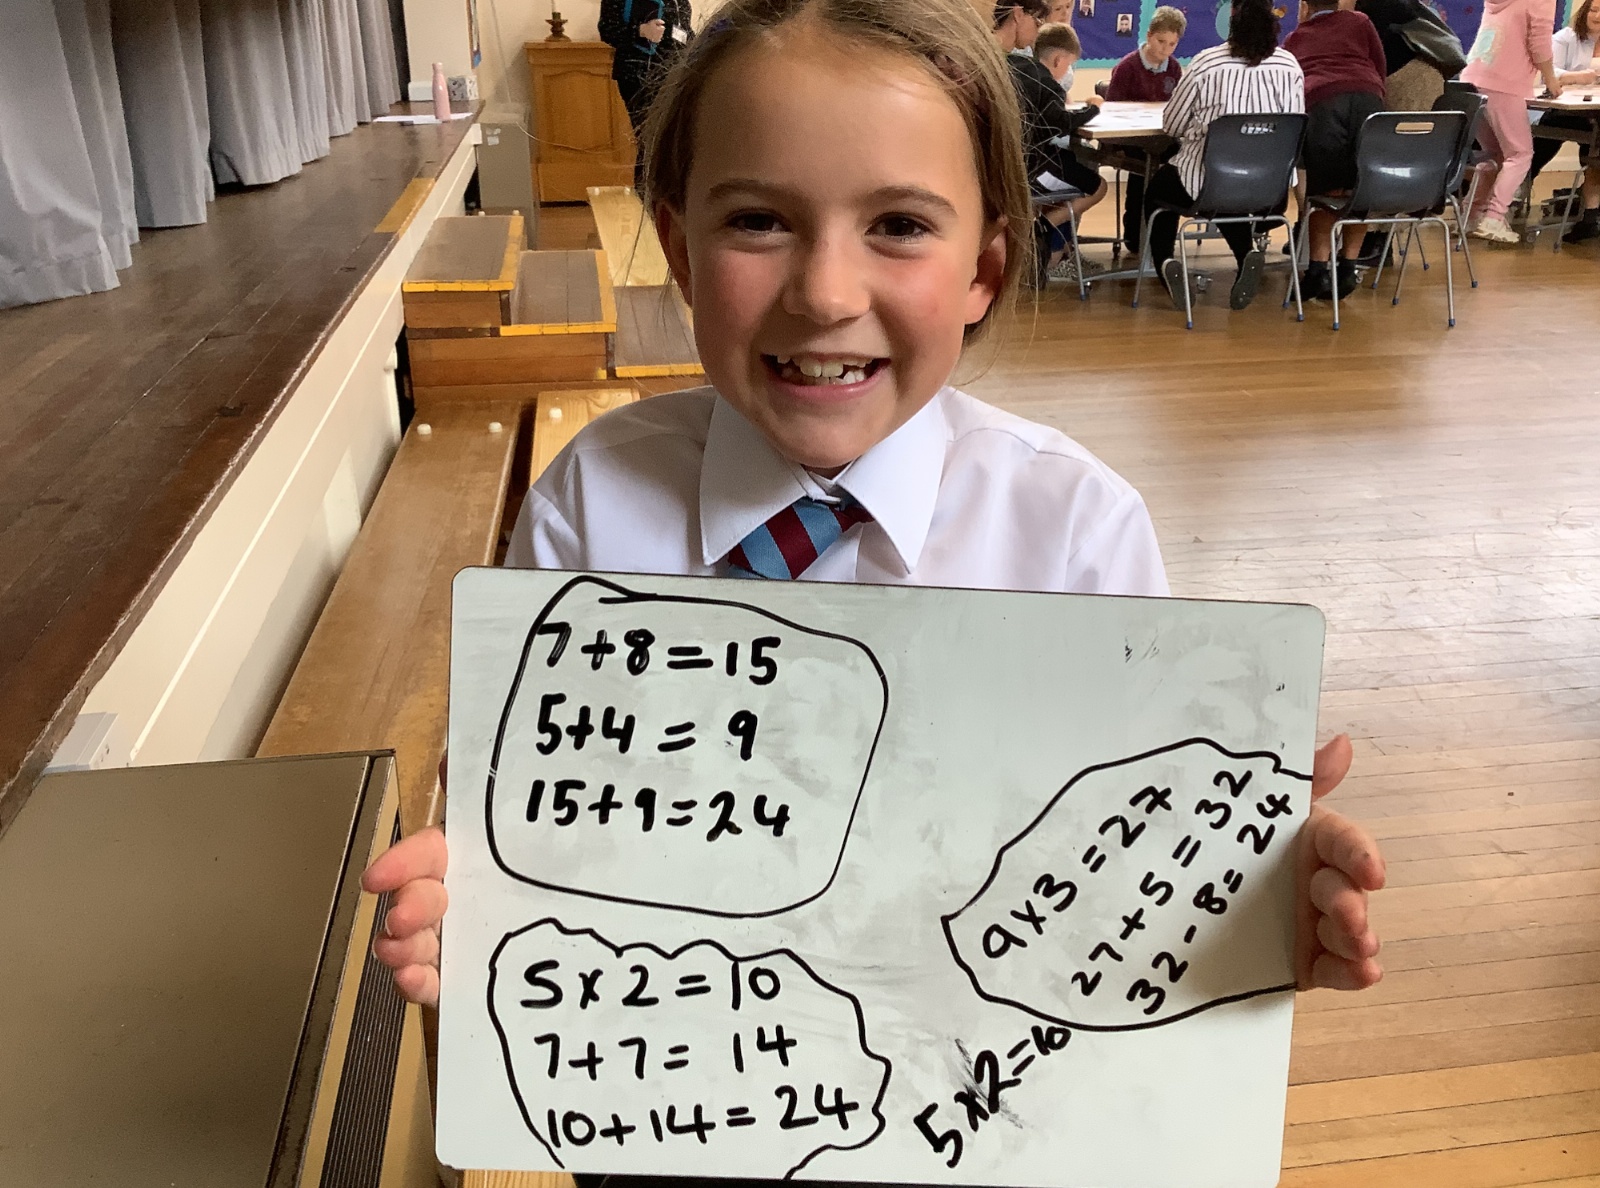 7+8=15
5+4 = 9
15+9=24
5 x 2 = 10
7+7= 14
10+14= 24
9x3=27
27+5=32
32-8=24
5x2=10